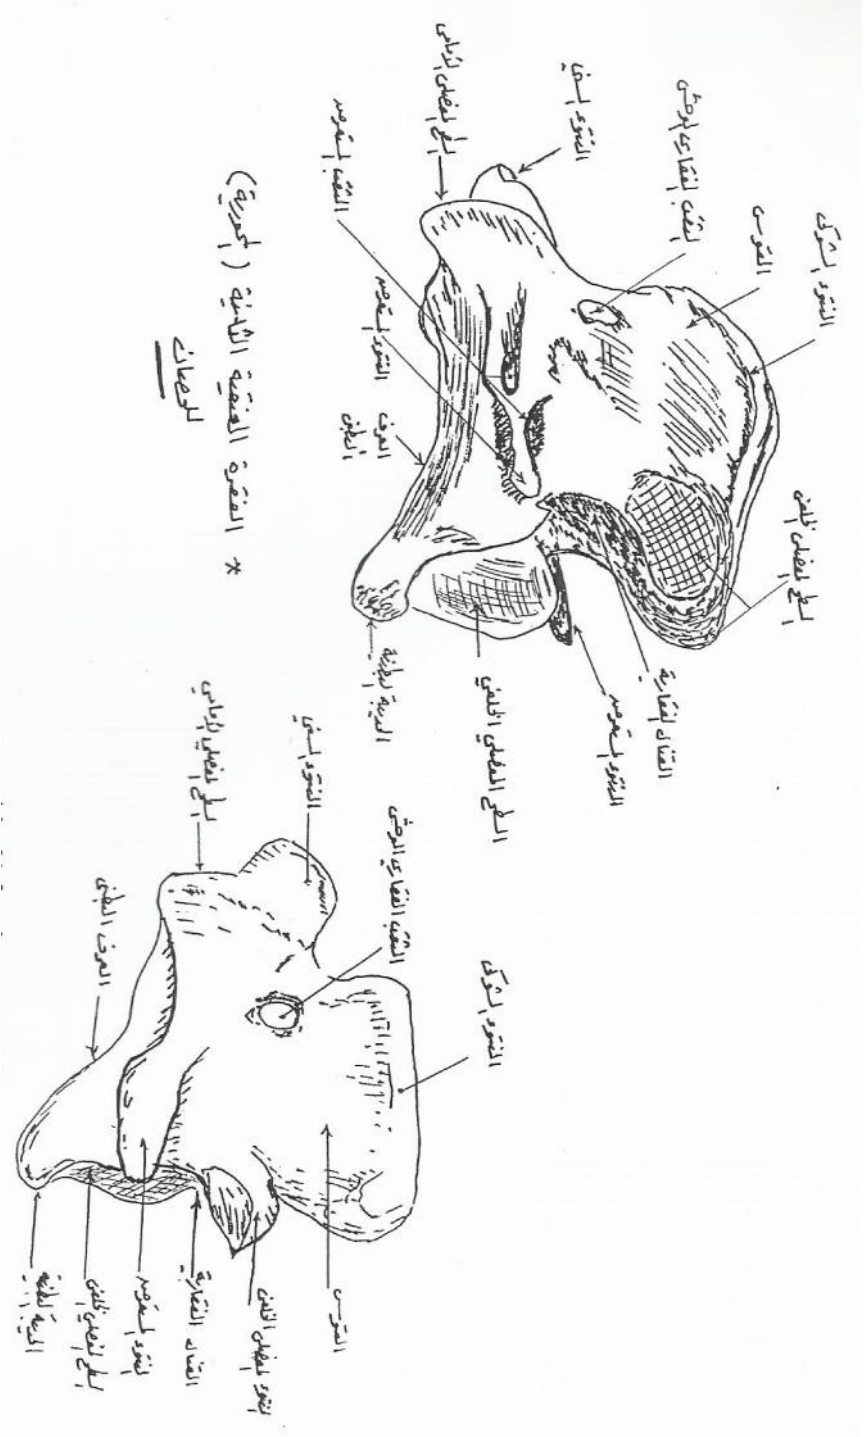 * الفقرة العنقية الثانية (المحورية)
للحصان
النتوء الشوكي
القوس
الثقب الفقاري الوحشي
النتوء السني
السطح المفصلي الأمامي
الثقب المستعرض
النتوء المستعرض
العرف
البطني
السطح المفصلي الخلفي
القناة الفقارية
النتوء المستعرض
السطح المفصلي الخلفي
الحدبة البطنية
النتوء الشوكي
الثقب الفقاري الوحشي
النتوء السني
السطح المفصلي الأمامي
العرف البطني
القوس
النتوء المفصلي الخلفي
القناة الفقارية
النتوء المستعرض
السطح المفصلي الخلفي
الحدبة البطنية